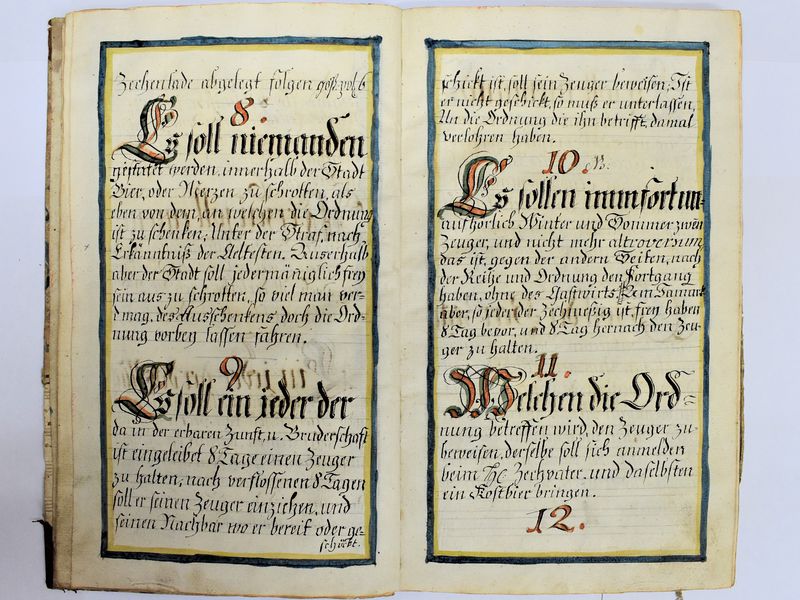 Zechenlade abgelegt folgen
8.
Es soll niemanden
gestatet werden, innerhalb der Stadt
Bier, oder Mertzen zu schrotten, als
eben von dem, an welchen die Ordnung
ist zu schenken; Unter der Straf, nach
Erkänntniß der Aeltesten. Auserhalb
aber der Stadt soll jedermäniglich frey
sein aus zu schrotten, so viel man ver=
d mag, des Ausschenkens doch die Ord=
nung vorbey lassen fahren.
9.
Es soll ein jeder der
da in der erbaren Zunft, u. Bruderschaft
ist eingeleibet 8 Tage einen Zeuger
zu halten, nach verflossenen 8 Tagen
soll er seinen Zeuger einziehen, und
seinen Nachbar wo er bereit oder ge=
schickt.
schickt ist, soll sein Zeuger beweisen, Ist
er nicht geschickt, so muß er unterlassen,
Un die Ordnung die ihn betrifft, damal
verlohren haben.
10.
Es sollen immfort un=
aufhörlich Winter und Sommer zwen
Zeuger, und nicht mehr altroversum
das ist, gegen der andern Seiten, nach
der Reihe und Ordnung den Fortgang
haben, ohne des Gastwirts
aber, so jeder der Zechmeßig ist, frey haben
8 Tag bevor, und 8 Tag hernach den Zeu=
ger zu halten.
11.
Welchen die Ord=
nung betreffen wird, den Zeuger zu
beweisen, derselbe soll sich anmelden
beim Zechvater, und daselbsten
ein Kostbier bringen.
12.